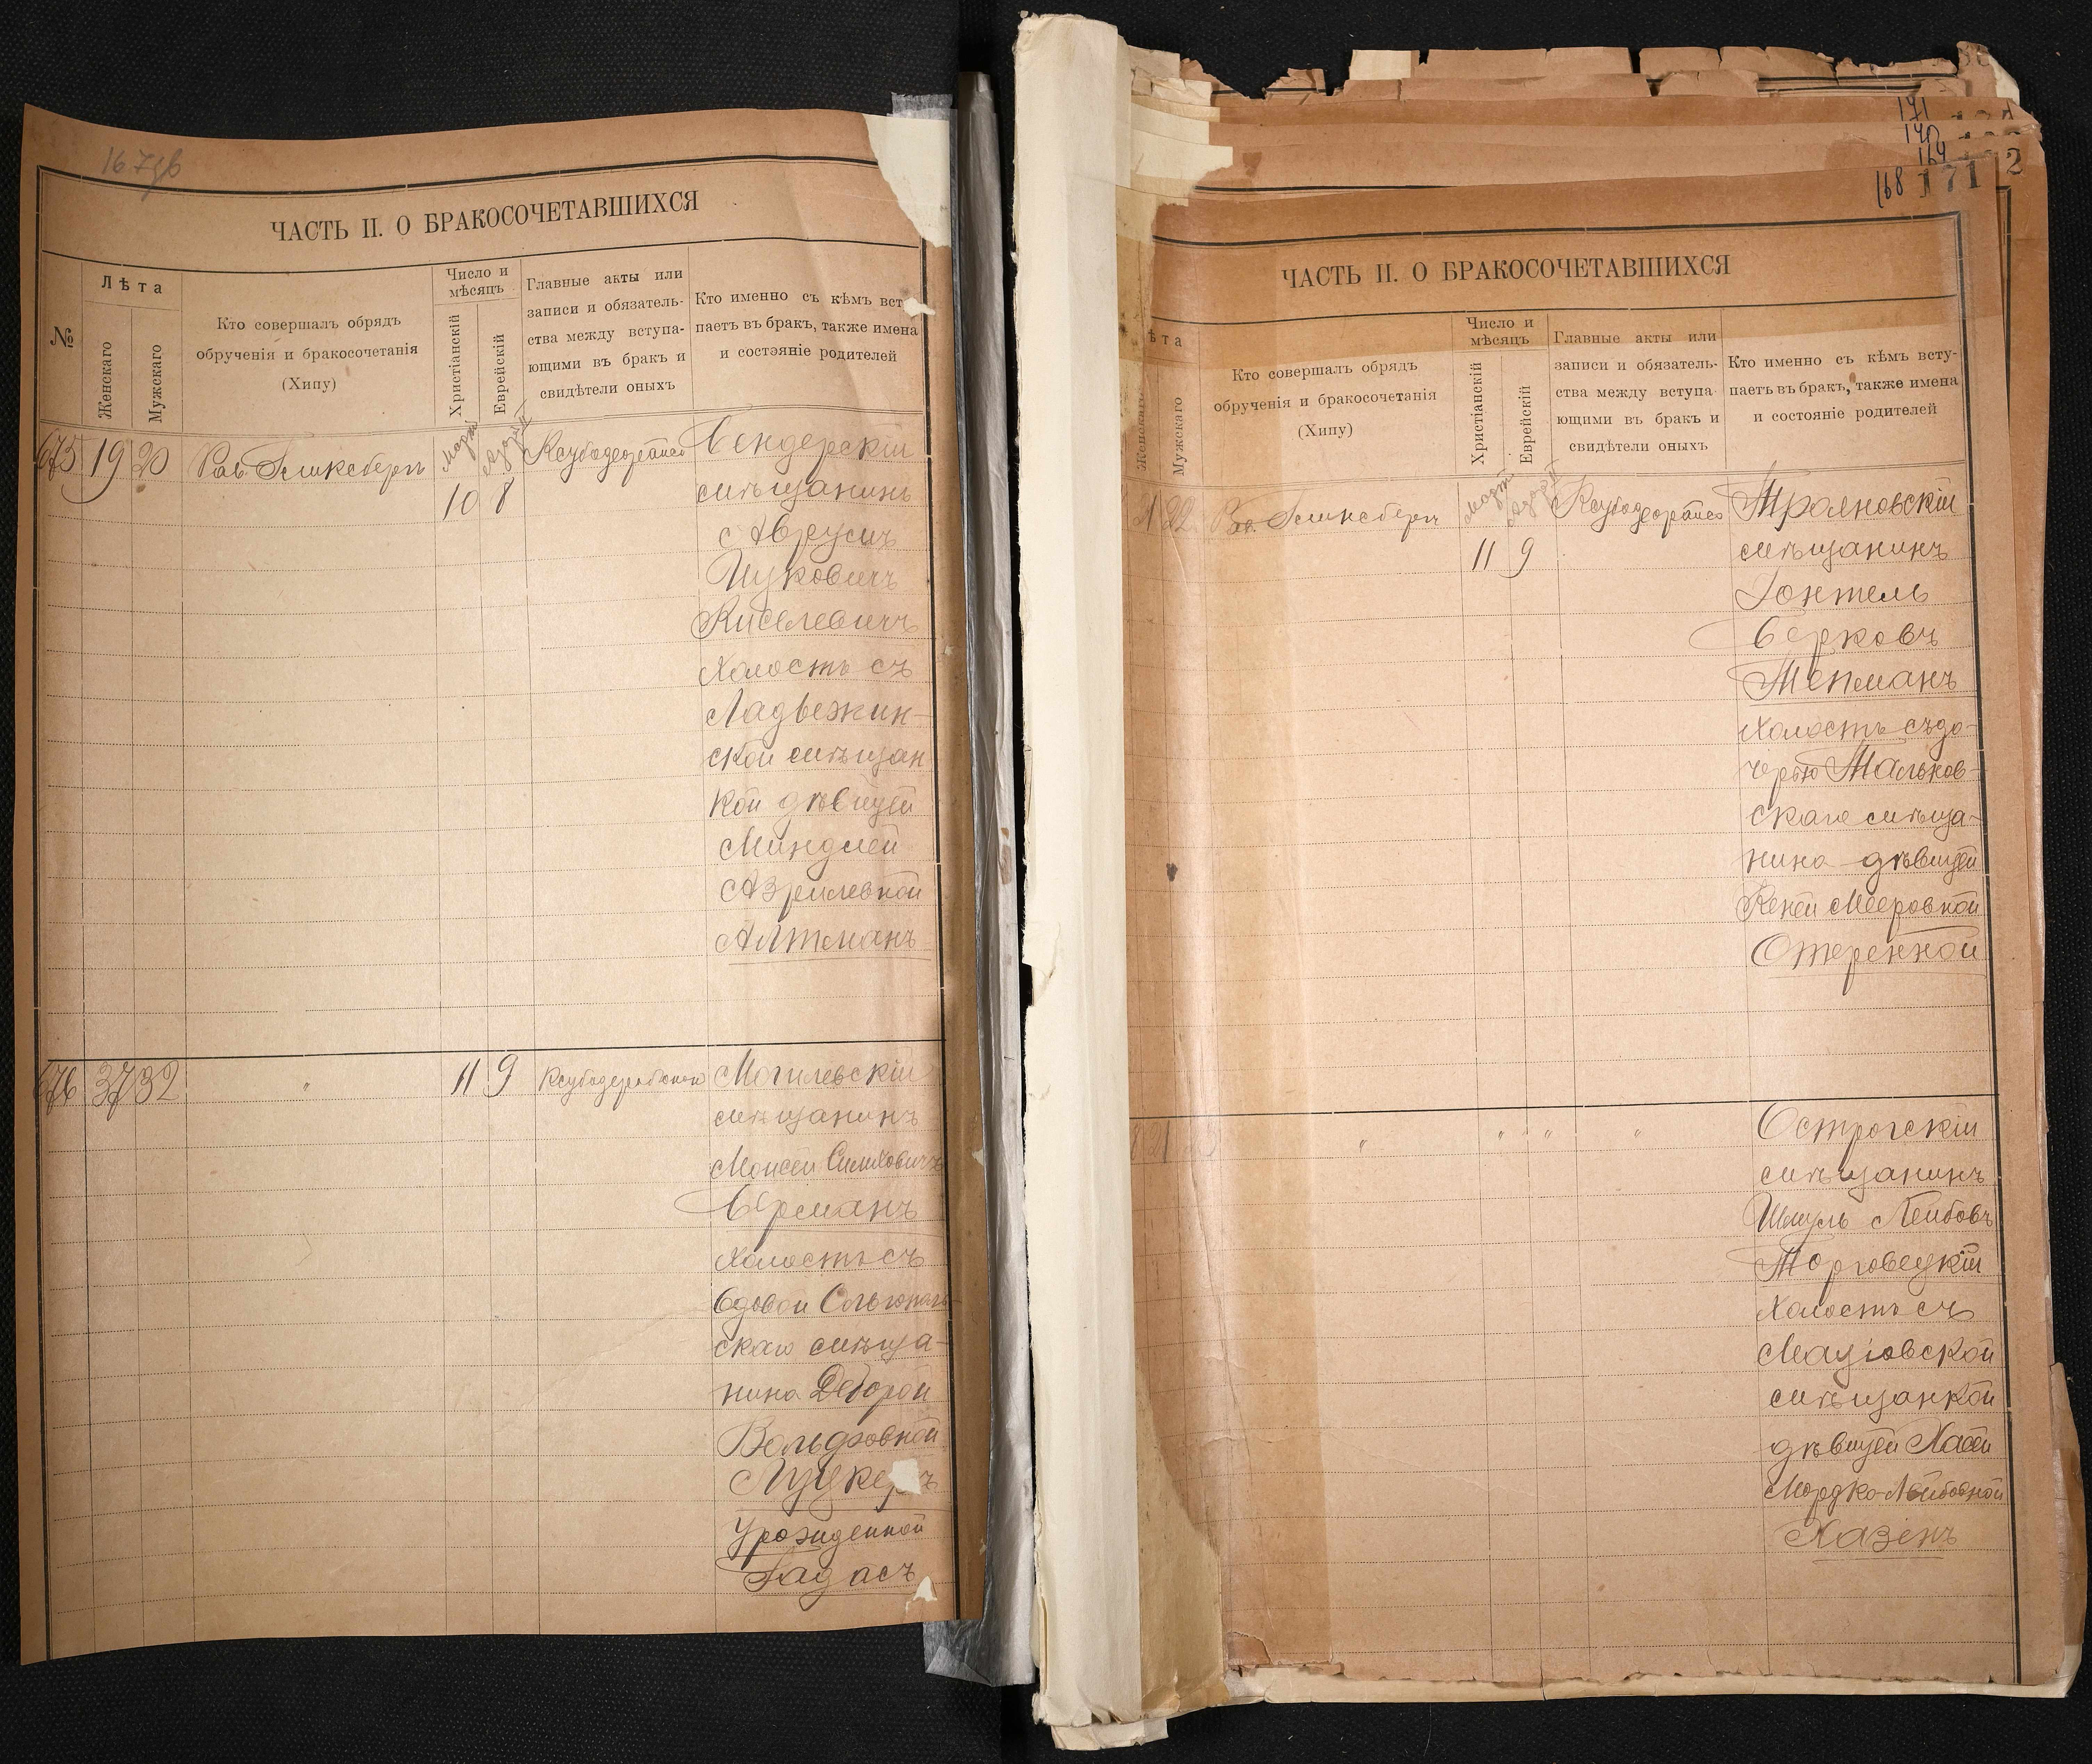 ЧАСТЬ II. О БРАКОСОЧЕТАВШИХСЯ
№
Лѣта
Женскаго
Мужскаго
Кто совершалъ обрядъ
обрученія и бракосочетанія
(Хипу)
Число и
мѣсяцъ
Христіанскій
Еврейскій
Главные акты или
записи и обязатель-
ства между вступа-
ющими въ бракъ и
свидѣтели оныхъ
Кто именно съ кѣмъ вст
паетъ въ бракъ, также имена
и состояніе родителей
675 19 20
Мартъ
10 8
Бендерскій
мѣщанинъ
Аврумъ
Ицковичъ
Киселевичъ
холостъ съ
Ладыжин-
ской мѣщан
кой дѣвицей
Миндлей
Азрилевной
Алтманъ
676 37 32 " 11 9
Могилевскій
мѣщанинъ
Моисей
Берманъ
холостъ съ
вдовой
скаго мѣща-
нина Деборой
Вольфовной
Луцкеръ
урожденной
168 171
ЧАСТЬ II. О БРАКОСОЧЕТАВШИХСЯ
ѣта
Женскаго
Мужскаго
Кто совершалъ обрядъ
обрученія и бракосочетанія
(Хипу)
Число и
мѣсяцъ
Христіанскій
Еврейскій
Главные акты или
записи и обязатель-
ства между вступа-
ющими въ бракъ и
свидѣтели оныхъ
Кто именно съ кѣмъ всту-
паетъ въ бракъ, также имена
и состояніе родителей
22
Мартъ
11 9
Трояновскій
мѣщанинъ
Іонтель
Берковъ
Тепманъ
холостъ съ до-
черью Мальков-
скаго мѣща-
нина дѣвицей
Кеней Мееровной
Отеренной
21 " " " "
Острогскій
мѣщанинъ
Шмуль Лейбовъ
Торговецкій
холостъ съ
Маціовской
мѣщанкой
дѣвицей Хаей
Мордко-Лейбовной
Хазенъ